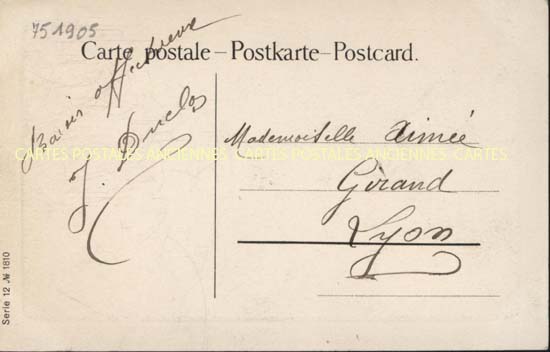 751905
Carte postale – Postkarte – Postcard.
Baisers affectueux
J. Duclos
Mademoiselle Aimée
Girand
Lyon
CARTES POSTALES ANCIENNES CARTES POSTALES ANCIENNES CARTES
Serie 12 № 1810